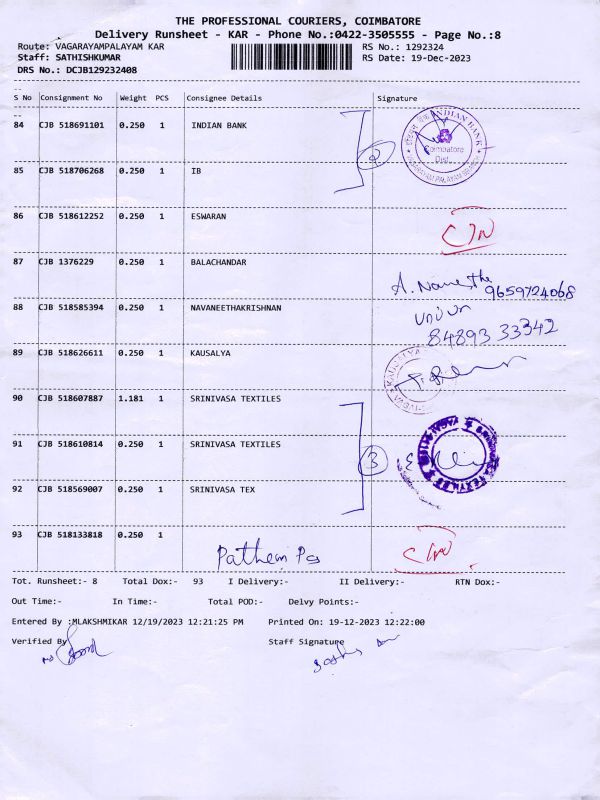 THE PROFESSIONAL COURIERS, COIMBATORE
Delivery Runsheet - KAR - Phone No.:0422-3505555 - Page No.:8
Route: VAGARAYAMPALAYAM KAR RS No.: 1292324
Staff: SATHISHKUMAR RS Date: 19-Dec-2023
DRS No.: DCJB129232408
S No Consignment No Weight PCS Consignee Details Signature
84 CJB 518691101 0.250 1 INDIAN BANK
INDIAN BANK
Coimbatore
Dist.
2
85 CJB 518706268 0.250 1 IB
86 CJB 518612252 0.250 1 ESWARAN
87 CJB 1376229 0.250 1 BALACHANDAR
9659724068
88 CJB 518585394 0.250 1 NAVANEETHAKRISHNAN
84893 33342
89 CJB 518626611 0.250 1 KAUSALYA
KAUSALYA
90 CJB 518607887 1.181 1 SRINIVASA TEXTILES
91 CJB 518610814 0.250 1 SRINIVASA TEXTILES
3
92 CJB 518569007 0.250 1 SRINIVASA TEX
93 CJB 518133818 0.250 1
Tot. Runsheet:- 8 Total Dox:- 93 I Delivery:- II Delivery:- RTN Dox:-
Out Time:- In Time:- Total POD:- Delvy Points:-
Entered By :MLAKSHMIKAR 12/19/2023 12:21:25 PM Printed On: 19-12-2023 12:22:00
Verified By Staff Signature